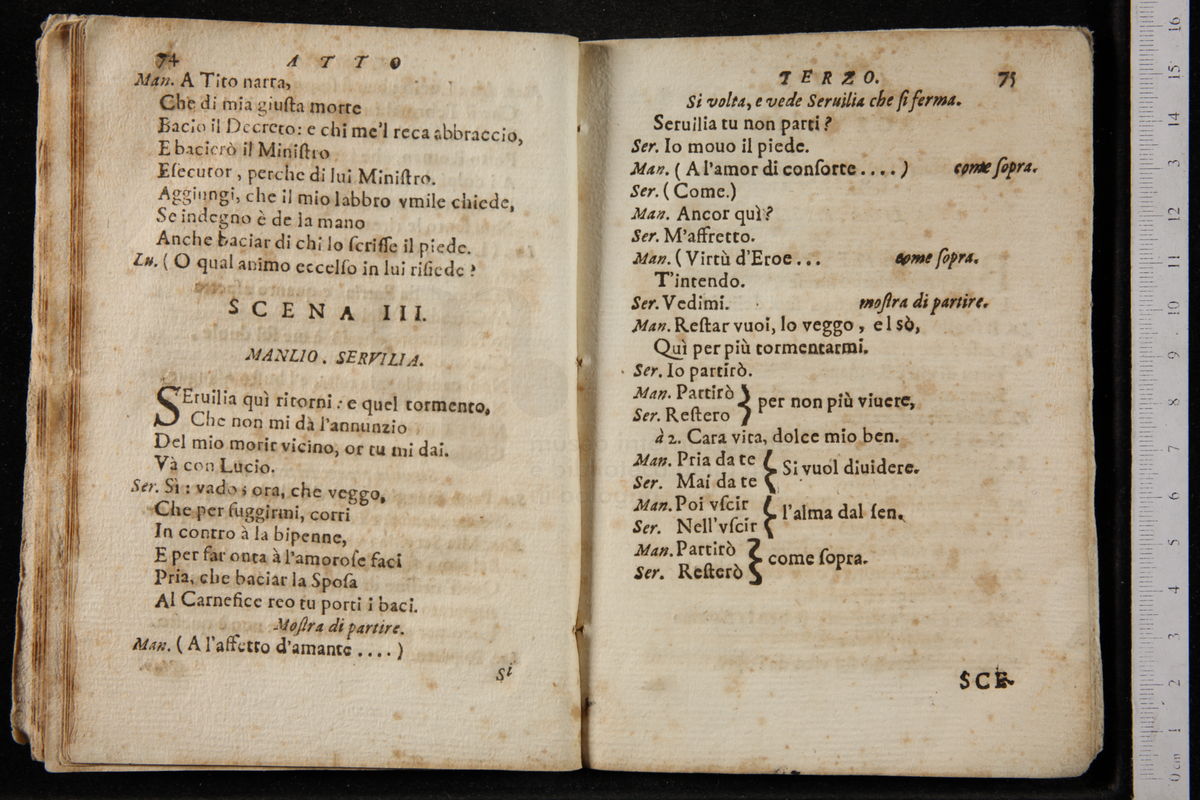 74 ATTO
Man. A Tito narra,
Che di mia giuſta morte
Bacio il Decreto: e chi me'l reca abbraccio,
E bacierò il Miniſtro
Eſecutor, perche di lui Miniſtro.
Aggiungi, che il mio labbro vmile chiede,
Se indegno è de la mano
Anche baciar di chi lo ſcriſſe il piede.
Lu. ( O qual animo eccelſo in lui riſiede ?
SCENA III.
MANLIO. SERVILIA.
SEruilia quì ritorni : e quel tormento,
Che non mi dà l'annunzio
Del mio morir vicino, or tu mi dai.
Và con Lucio.
Ser. Sì : vado ; ora, che veggo,
Che per fuggirmi, corri
In contro à la bipenne,
E per far onta à l'amoroſe faci
Pria, che baciar la Spoſa
Al Carnefice reo tu porti i baci.
Moſtra di partire.
Man. ( A l'affetto d'amante .... )
Si
TERZO. 75
Si volta, e vede Seruilia che ſi ferma.
Seruilia tu non parti ?
Ser. Io mouo il piede.
Man. ( A l'amor di conſorte .... ) come ſopra.
Ser. ( Come.)
Man. Ancor quì ?
Ser. M'affretto.
Man. ( Virtù d'Eroe ... come ſopra.
T'intendo.
Ser. Vedimi. moſtra di partire.
Man. Reſtar vuoi, lo veggo, e l sò,
Quì per più tormentarmi.
Ser. Io partirò.
Man. Partirò } per non più viuere,
Ser. Reſtero
à 2. Cara vita, dolce mio ben.
Man. Pria da te { Si vuol diuidere.
Ser. Mai da te
Man. Poi vſcir { l'alma dal ſen.
Ser. Nell'vſcir
Man. Partirò } come ſopra.
Ser. Reſterò
SCE-
16
15
14
13
12
11
10
9
8
7
6
5
4
3
2
1
0 cm